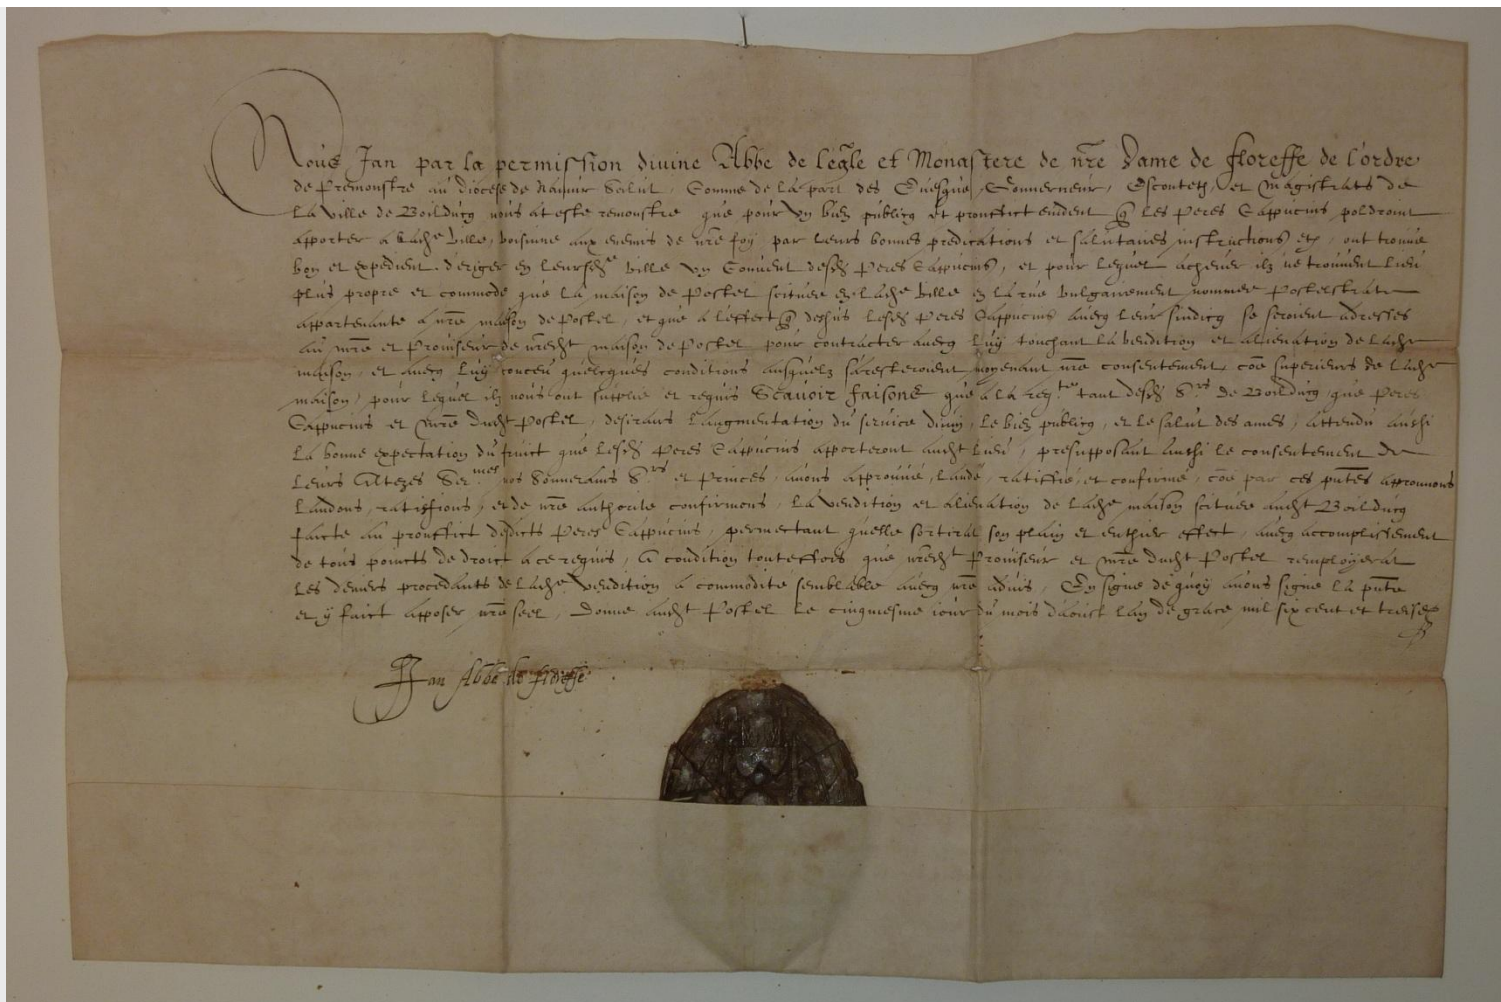 Nous Jan par la permission divine Abbe de legle et Monastere de nre Dame de floreffe de lordre
de Premonstre au diocese de Namur Salut, Comme de la part des Evesque, Gouverneur, Escoutets, et Magistrats de
la ville de Boilducq nous at este remonstre que pour un bien publicq et prouffict evident que les Peres Cappucins poldroint
apporter a ladte ville, voisinne aux enemis de nre foy, par leurs bonnes predications et salutaires instructions etc, ont trouve
bon et expedient deriger en leurs ville un Convent desdts Peres Cappucins, et pour lequel achever ilz ne trouvent lieu
plus propre et commode que la maison de Postel scituee en ladte ville en la rue vulgairement nommee Postelstrate
appartenante a nre maison de Postel, et que a leffect que dessus lesdts Peres Cappucins avecq leur sindicq se seroient adresses
au mre et Proviseur de nredt maison de Postel pour contracter avecq luy touchant la vendition et alienation de ladte
maison, et avecq luy conceu quelcques conditions ausquelz saresteroient moyenant nre consentement, coe superieurs de ladte
maison, pour lequel ilz nous ont supplie et requis Scavoir faisons que a la reqte tant desdts Srs de Boilducq, que Peres
Cappucins et mre dudt Postel, desirans laugmentation du service divin, le bien publicq, et le salut des ames, attendu aussi
la bonne expectation du fruict que lesdts Peres Cappucins apporteront audt lieu, presupposant aussi le consentement de
leurs Altezes Sermes nos Souverains Srs et Princes, avons approuve, laude, ratiffie, et confirme, coe par ces pntes approuvons
laudons, ratiffions, et de nre authorite confirmons, la vendition et alienation de ladte maison scituee audt Boilducq
faicte au prouffict dedicts Peres Cappucins, permectant quelle sortirat son plain et enthier effect, avecq accomplissement
de tous poincts de droict a ce requis, A condition touteffois que nredt Proviseur et mre dudt Postel remployerat
les deniers procedants de ladte vendition a commodite semblable avecq nre advis, En signe de quoy avons signe la pnte
et y faict apposer nre seel, Donne audt Postel le cinquiesme iour du mois daoust lan de grace mil six cent et treise
Jan Abbe de floreffe